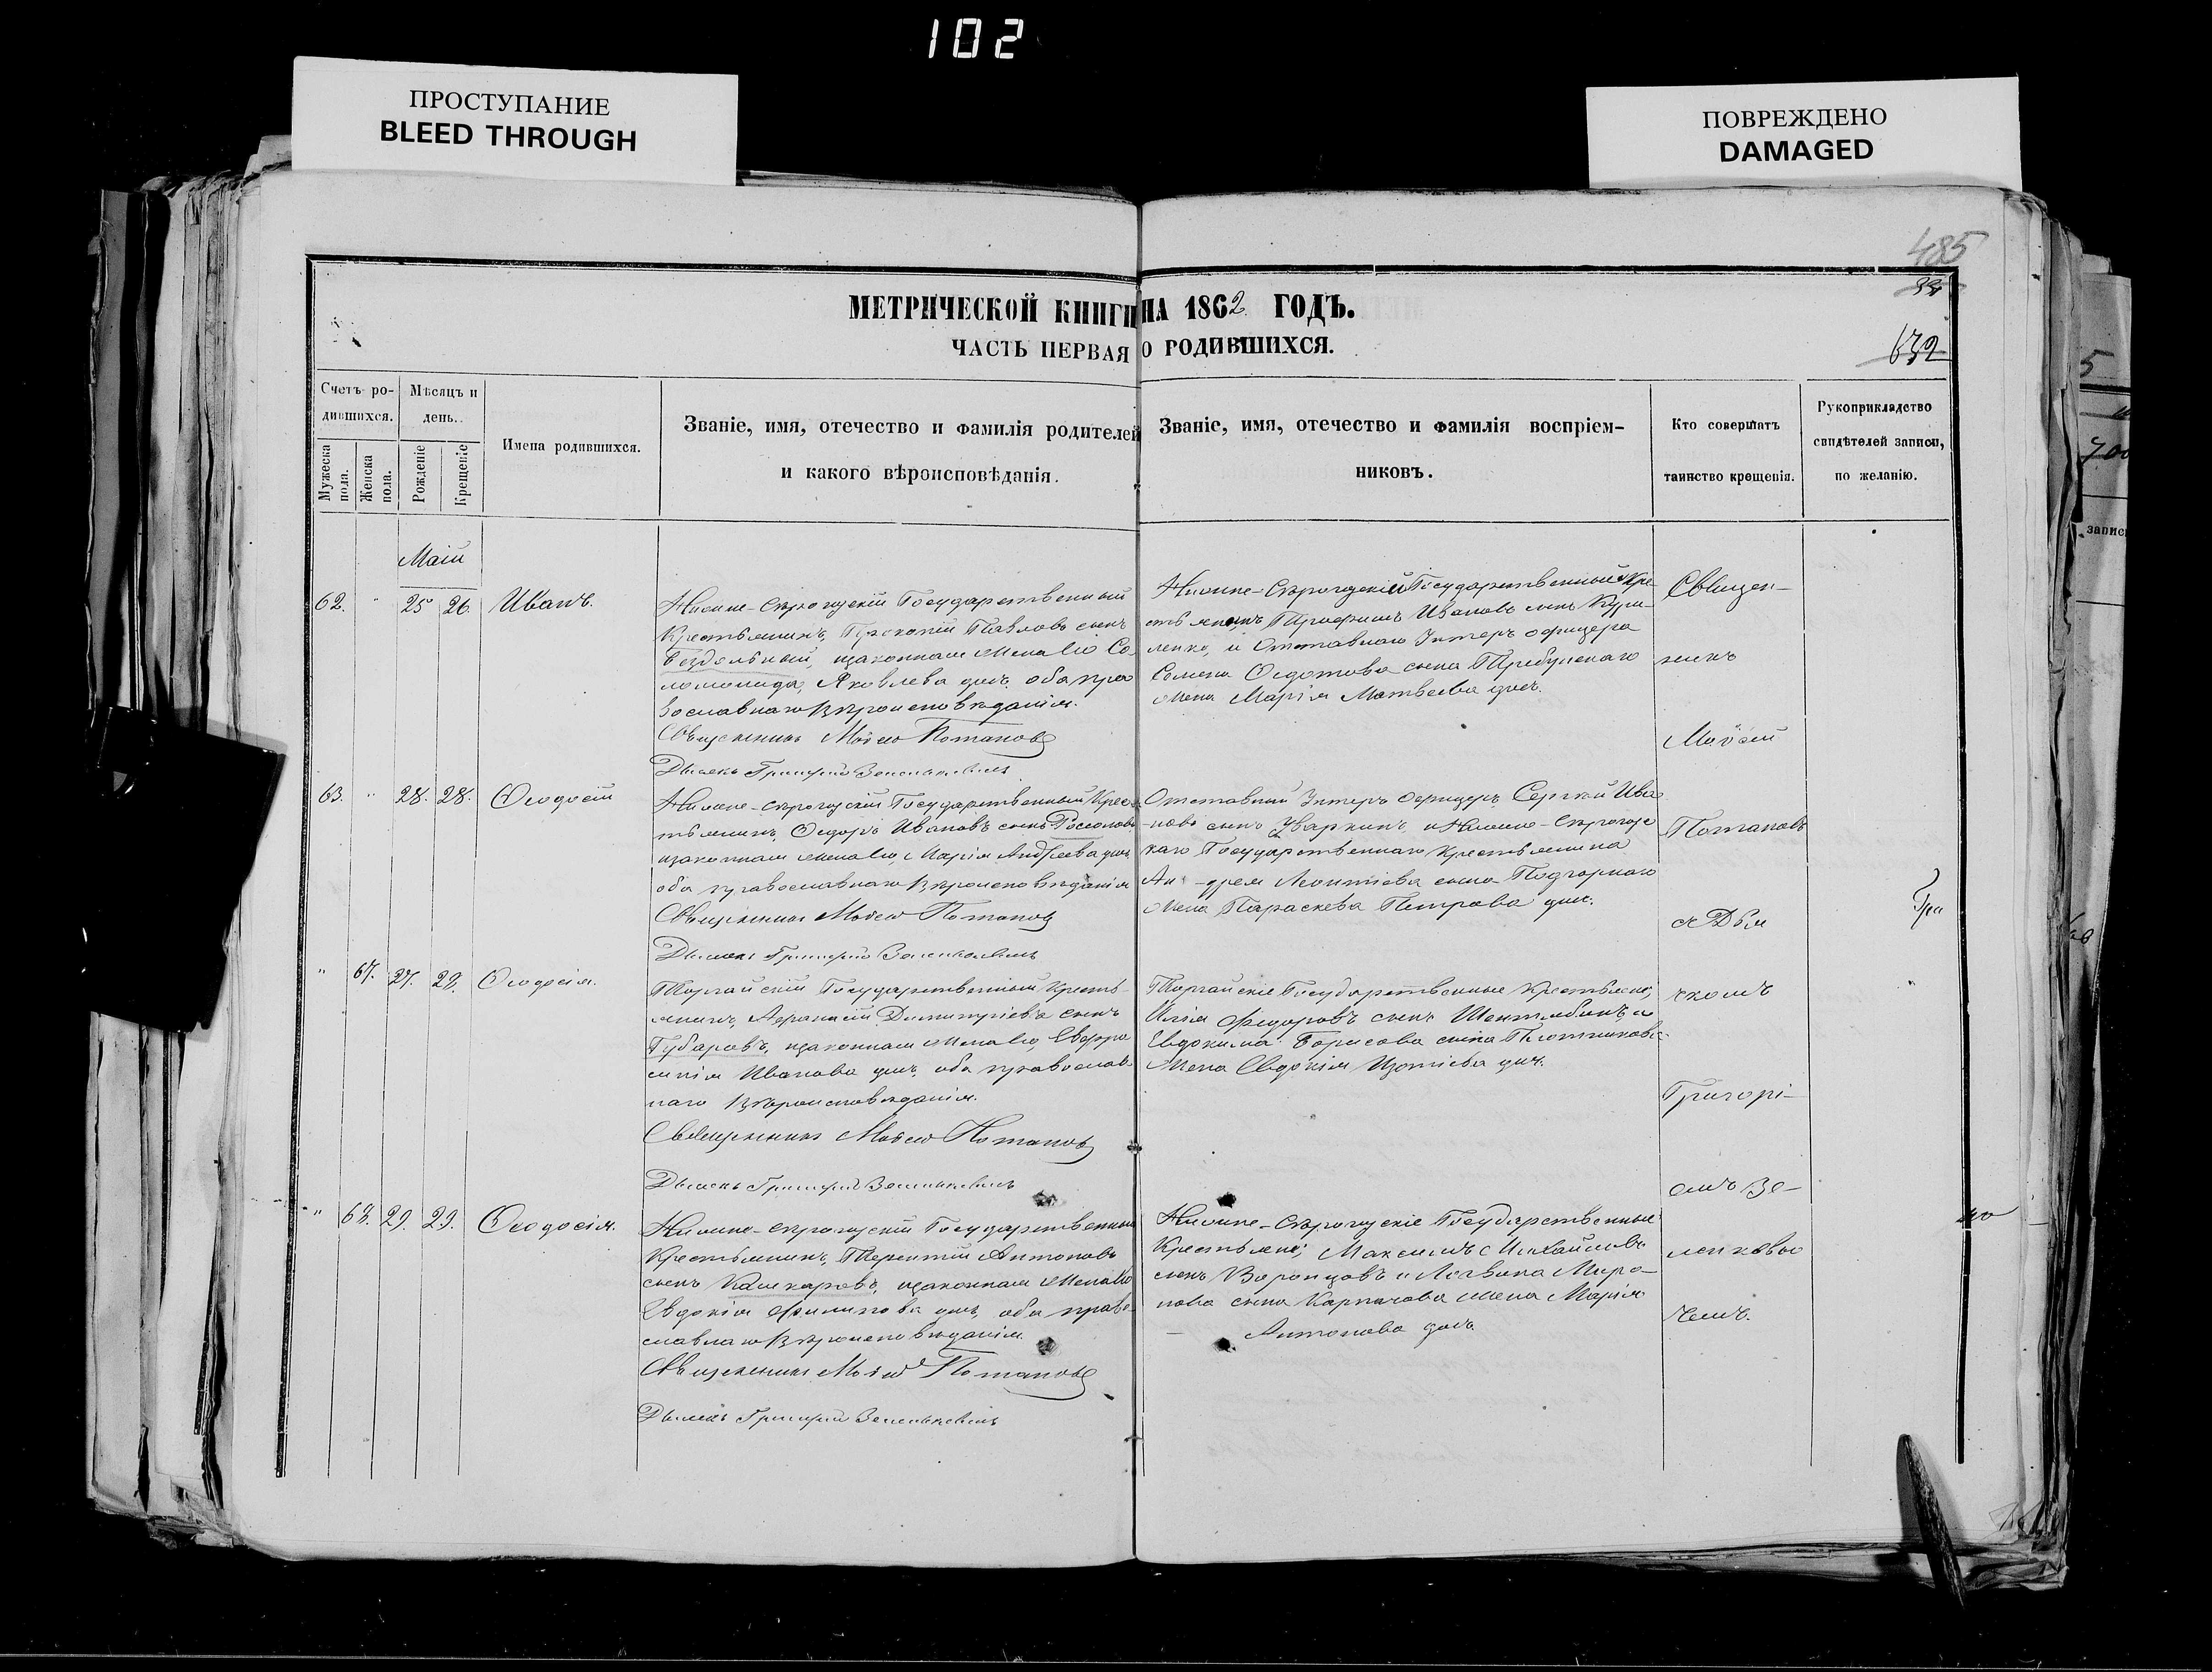 102
ПРОСТУПАНИЕ
BLEED THROUGH
ПОВРЕЖДЕНО
DAMAGED
485
632
МЕТРИЧЕСКОЙ КНИГИ НА 1862 ГОДЪ.
ЧАСТЬ ПЕРВАЯ О РОДИВШИХСЯ.
Счетъ ро-
дившихся.
Мужеска
пола.
Женска
пола.
Мѣсяцъ и
день.
Рожденіе
Крещеніе
Имена родившихся.
Званіе, имя, отечество и фамилія родителей
и какого вѣроисповѣданія.
Званіе, имя, отечество и фамилія воспріем-
никовъ.
Кто совершалъ
таинство крещенія.
Рукоприкладство
свидѣтелей записи,
по желанію.
Маій
62. " 25 26 Иванъ.
Нижне-Сѣрогузскій Государственный
Крестьянинъ, Прокопій Павловъ сынъ
Бездольный, изаконная жена его Со-
ломонида, Яковлева дочь. оба пра
вославнаго вѣроисповѣданія.
Священникъ Мойсей Потаповъ
Дьячекъ Григорій Зеленкевичъ
Нижне-Сѣрогузскій Государственный Кре
стьянинъ Трофимъ Ивановъ сынъ
ленко, и Отставнаго Унтеръ офицера
Семена Ѳедотова сына
жена Марія Матвѣева дочь.
63. " 28. 28. Ѳеодосій
Нижне-Сѣрогузскій Государственный Крес
тьянинъ, Ѳедоръ Ивановъ сынъ
изаконная жена его, Марія Андреева дочь
оба православнаго вѣроисповѣданія
Священникъ Мойсей Потаповъ
Дьячекъ Григорій Зеленкевичъ
Отставный Унтеръ Офицеръ Сергѣй Ива
новъ сынъ Уваркинъ, и Нижне-Сѣрогуз
каго Государственнаго Крестьянина
Ан-дрея Леонтіева сына Подгорнаго
жена Параскева Петрова дочь.
" 67. 27. 29. Ѳеодосія.
Торгайскій Государственный Кресть-
янинъ, Афанасій Димитріевъ сынъ
Губаровъ, изаконная жена его, Евфро
синія Иванова дочь, оба православ
наго вѣроисповѣданія.
Священникъ Мойсей Потаповъ
Дьячекъ Григорій Зеленкевичъ
Торгайскіе Государственные Крестьяне,
Илія Федоровъ сынъ и
Евдокима Борисова сына Плотникова
жена Евдокія Изотіева дочь.
" 68. 29. 29. Ѳеодосія.
Нижне-Сѣрогузскій Государственный
Крестьянинъ, Терентій Антоновъ
сынъ Кашкаровъ, изаконная жена его
Евдокія Филипова дочь, оба право
славнаго вѣроисповѣданія.
Священникъ Мойсей Потаповъ
Дьячекъ Григорій Зеленкевичъ
Нижне-Сѣрогузскіе Государственные
Крестьяне; Максимъ Михайловъ
сынъ Воронцовъ и Логвина Миро-
нова сына Карпачова жена Марія
Антонова дочь.
Священ-
никъ
Мойсей
Потаповъ
съ Дья
чкомъ
Григорі-
емъ Зе-
ленкеви
чемъ.
Гри